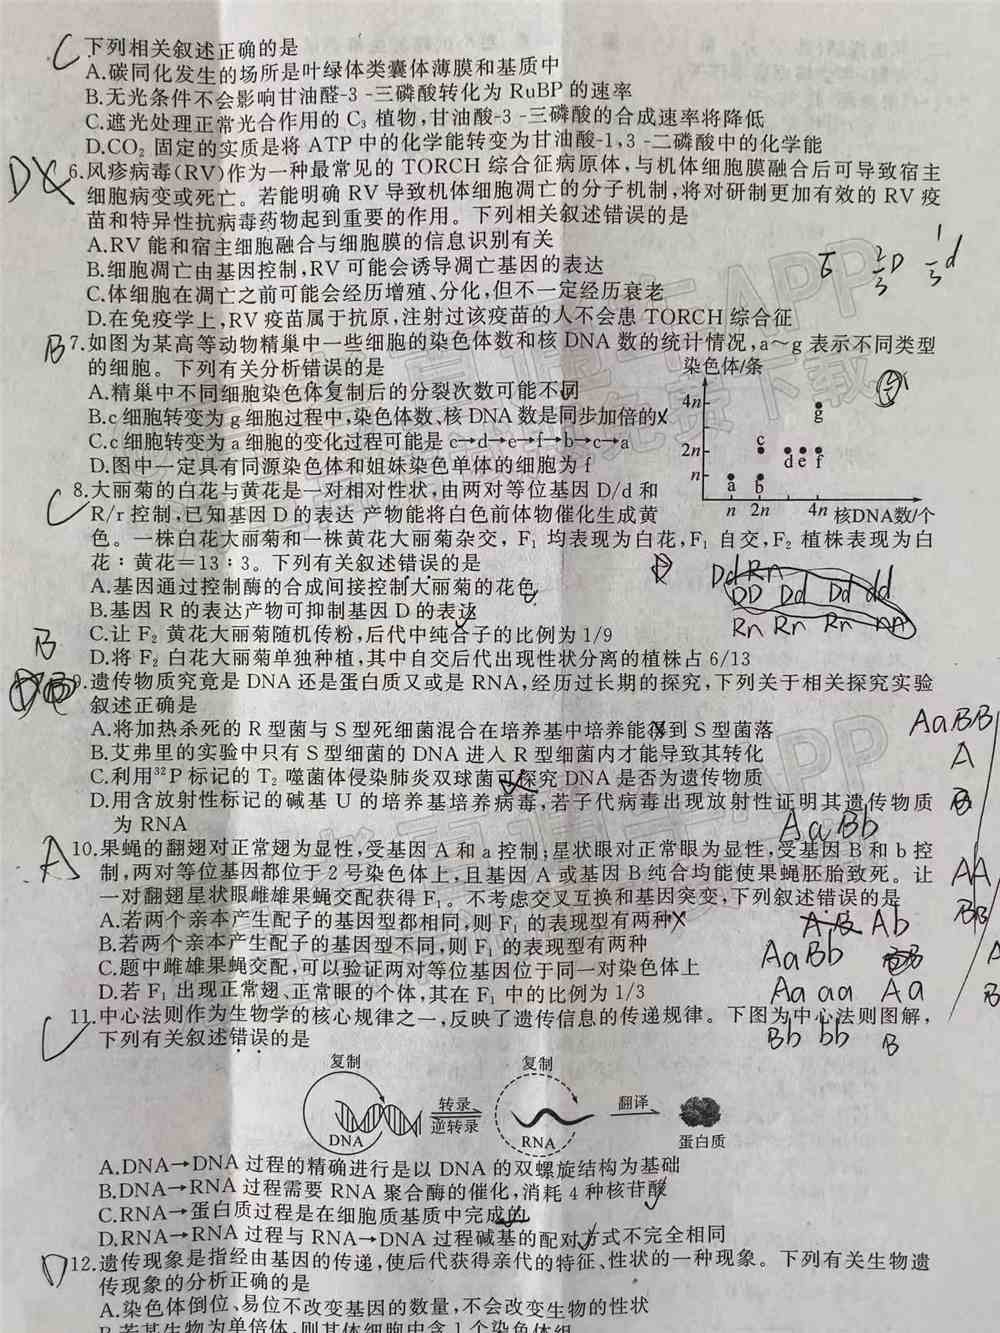 C 下列相关叙述正确的是
A.碳同化发生的场所是叶绿体类囊体薄膜和基质中
B.无光条件不会影响甘油醛-3-三磷酸转化为 RuBP 的速率
C.遮光处理正常光合作用的 C₃ 植物,甘油酸-3-三磷酸的合成速率将降低
D.CO₂ 固定的实质是将 ATP 中的化学能转变为甘油酸-1,3-二磷酸中的化学能
D 6.风疹病毒(RV)作为一种最常见的 TORCH 综合征病原体,与机体细胞膜融合后可导致宿主
细胞病变或死亡。若能明确 RV 导致机体细胞凋亡的分子机制,将对研制更加有效的 RV 疫
苗和特异性抗病毒药物起到重要的作用。下列相关叙述错误的是
A.RV 能和宿主细胞融合与细胞膜的信息识别有关
B.细胞凋亡由基因控制,RV 可能会诱导凋亡基因的表达
C.体细胞在凋亡之前可能会经历增殖、分化,但不一定经历衰老
2/3 D 1/3 d
D.在免疫学上,RV 疫苗属于抗原,注射过该疫苗的人不会患 TORCH 综合征
B 7.如图为某高等动物精巢中一些细胞的染色体数和核 DNA 数的统计情况,a~g 表示不同类型
的细胞。下列有关分析错误的是
A.精巢中不同细胞染色体复制后的分裂次数可能不同
B.c 细胞转变为 g 细胞过程中,染色体数、核 DNA 数是同步加倍的
C.c 细胞转变为 a 细胞的变化过程可能是 c→d→e→f→b→c→a
D.图中一定具有同源染色体和姐妹染色单体的细胞为 f
染色体/条
4n g
2n c d e f
n a b
n 2n 4n 核DNA数/个
C 8.大丽菊的白花与黄花是一对相对性状,由两对等位基因 D/d 和
R/r 控制,已知基因 D 的表达产物能将白色前体物催化生成黄
色。一株白花大丽菊和一株黄花大丽菊杂交,F₁ 均表现为白花,F₁ 自交,F₂ 植株表现为白
花∶黄花=13∶3。下列有关叙述错误的是
A.基因通过控制酶的合成间接控制大丽菊的花色
B.基因 R 的表达产物可抑制基因 D 的表达
C.让 F₂ 黄花大丽菊随机传粉,后代中纯合子的比例为 1/9
D.将 F₂ 白花大丽菊单独种植,其中自交后代出现性状分离的植株占 6/13
DD Dd Dd dd
B
9.遗传物质究竟是 DNA 还是蛋白质又或是 RNA,经历过长期的探究,下列关于相关探究实验
叙述正确的是
A.将加热杀死的 R 型菌与 S 型死细菌混合在培养基中培养能得到 S 型菌落
B.艾弗里的实验中只有 S 型细菌的 DNA 进入 R 型细菌内才能导致其转化
C.利用³²P 标记的 T₂ 噬菌体侵染肺炎双球菌可探究 DNA 是否为遗传物质
D.用含放射性标记的碱基 U 的培养基培养病毒,若子代病毒出现放射性证明其遗传物质
为 RNA
AaBB
A
AaBb
A 10.果蝇的翻翅对正常翅为显性,受基因 A 和 a 控制;星状眼对正常眼为显性,受基因 B 和 b 控
制,两对等位基因都位于 2 号染色体上,且基因 A 或基因 B 纯合均能使果蝇胚胎致死。让
一对翻翅星状眼雌雄果蝇交配获得 F₁。不考虑交叉互换和基因突变,下列叙述错误的是
A.若两个亲本产生配子的基因型都相同,则 F₁ 的表现型有两种
B.若两个亲本产生配子的基因型不同,则 F₁ 的表现型有两种
C.题中雌雄果蝇交配,可以验证两对等位基因位于同一对染色体上
D.若 F₁ 出现正常翅、正常眼的个体,其在 F₁ 中的比例为 1/3
AA
BB
Ab
AaBb
Aa aa Aa
Bb bb B
C 11.中心法则作为生物学的核心规律之一,反映了遗传信息的传递规律。下图为中心法则图解,
下列有关叙述错误的是
复制 复制
DNA 转录 逆转录 RNA 翻译 蛋白质
A.DNA→DNA 过程的精确进行是以 DNA 的双螺旋结构为基础
B.DNA→RNA 过程需要 RNA 聚合酶的催化,消耗 4 种核苷酸
C.RNA→蛋白质过程是在细胞质基质中完成的
D.RNA→RNA 过程与 RNA→DNA 过程碱基的配对方式不完全相同
D 12.遗传现象是指经由基因的传递,使后代获得亲代的特征、性状的一种现象。下列有关生物遗
传现象的分析正确的是
A.染色体倒位、易位不改变基因的数量,不会改变生物的性状
B.若某生物为单倍体,则其体细胞中含 1 个染色体组